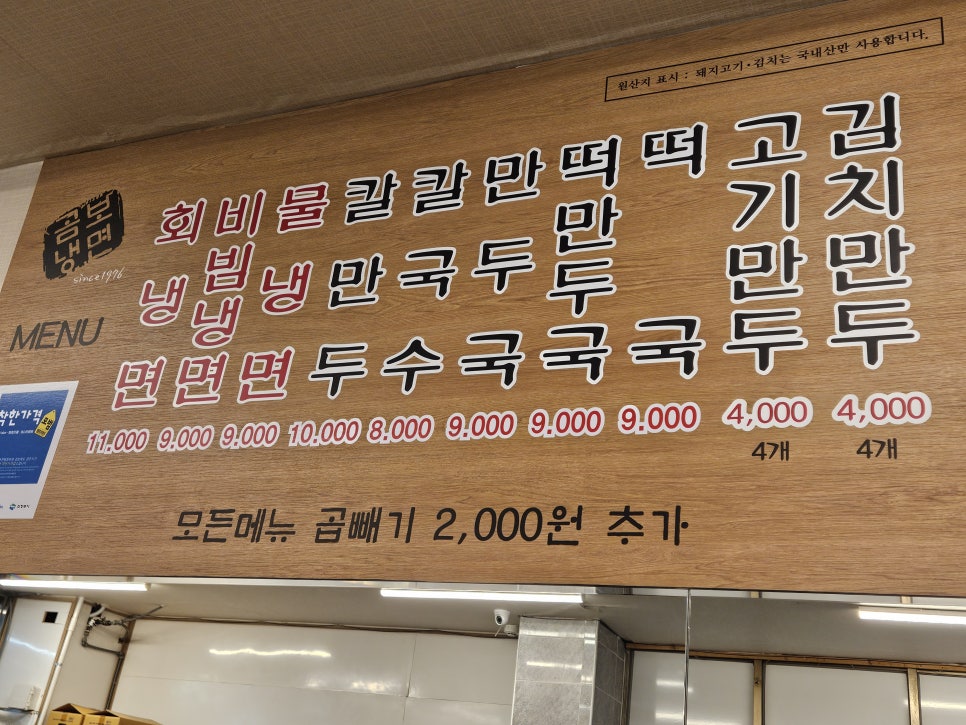 원산지 표시 : 돼지고기·김치는 국내산만 사용합니다.
곰보
냉면
MENU
회냉면
11.000
비빔냉면
9.000
물냉면
9.000
칼만두
10.000
칼국수
8.000
만두국
9.000
떡만두국
9.000
떡국
9.000
고기만두
4,000
4개
김치만두
4,000
4개
모든메뉴 곱빼기 2,000원 추가
착한가격